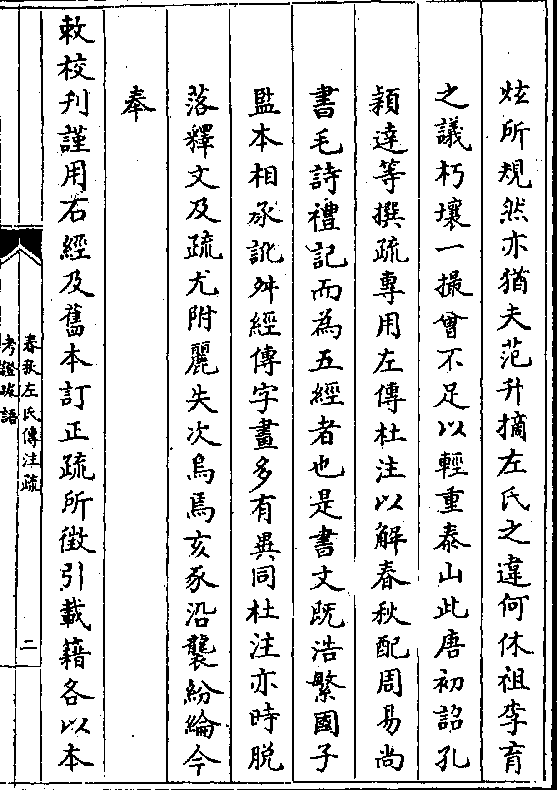 炫所規然亦猶夫范升摘左氏之違何休祖李育
之議朽壤一撮曾不足以輕重泰山此唐初詔孔
穎達等撰疏專用左傳杜注以解春秋配周易尚
書毛詩禮記而為五經者也是書文既浩繁國子
監本相承訛舛經傳字畫多有異同杜注亦時脱
落釋文及疏尤附麗失次烏焉亥豕沿襲紛綸今
奉
敕校刋謹用石經及舊本訂正疏所徵引載籍各以本
春秋左氏傳注疏
考證跋語
二